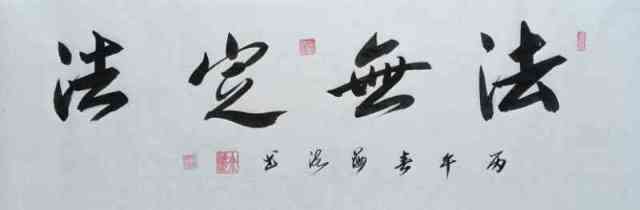 法無定法
丙午春书